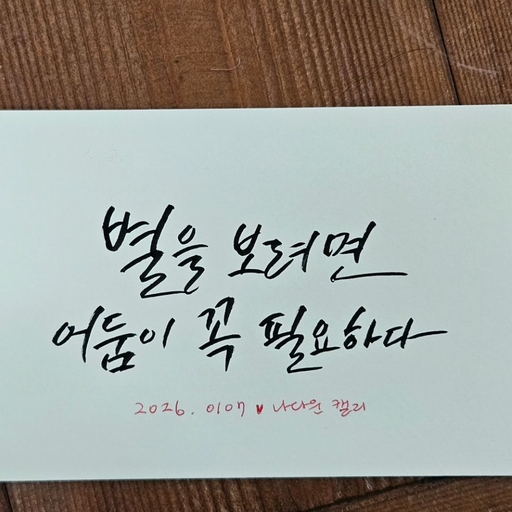 별을 보려면
어둠이 꼭 필요하다
2026. 0107 ♥ 나다운 캘리